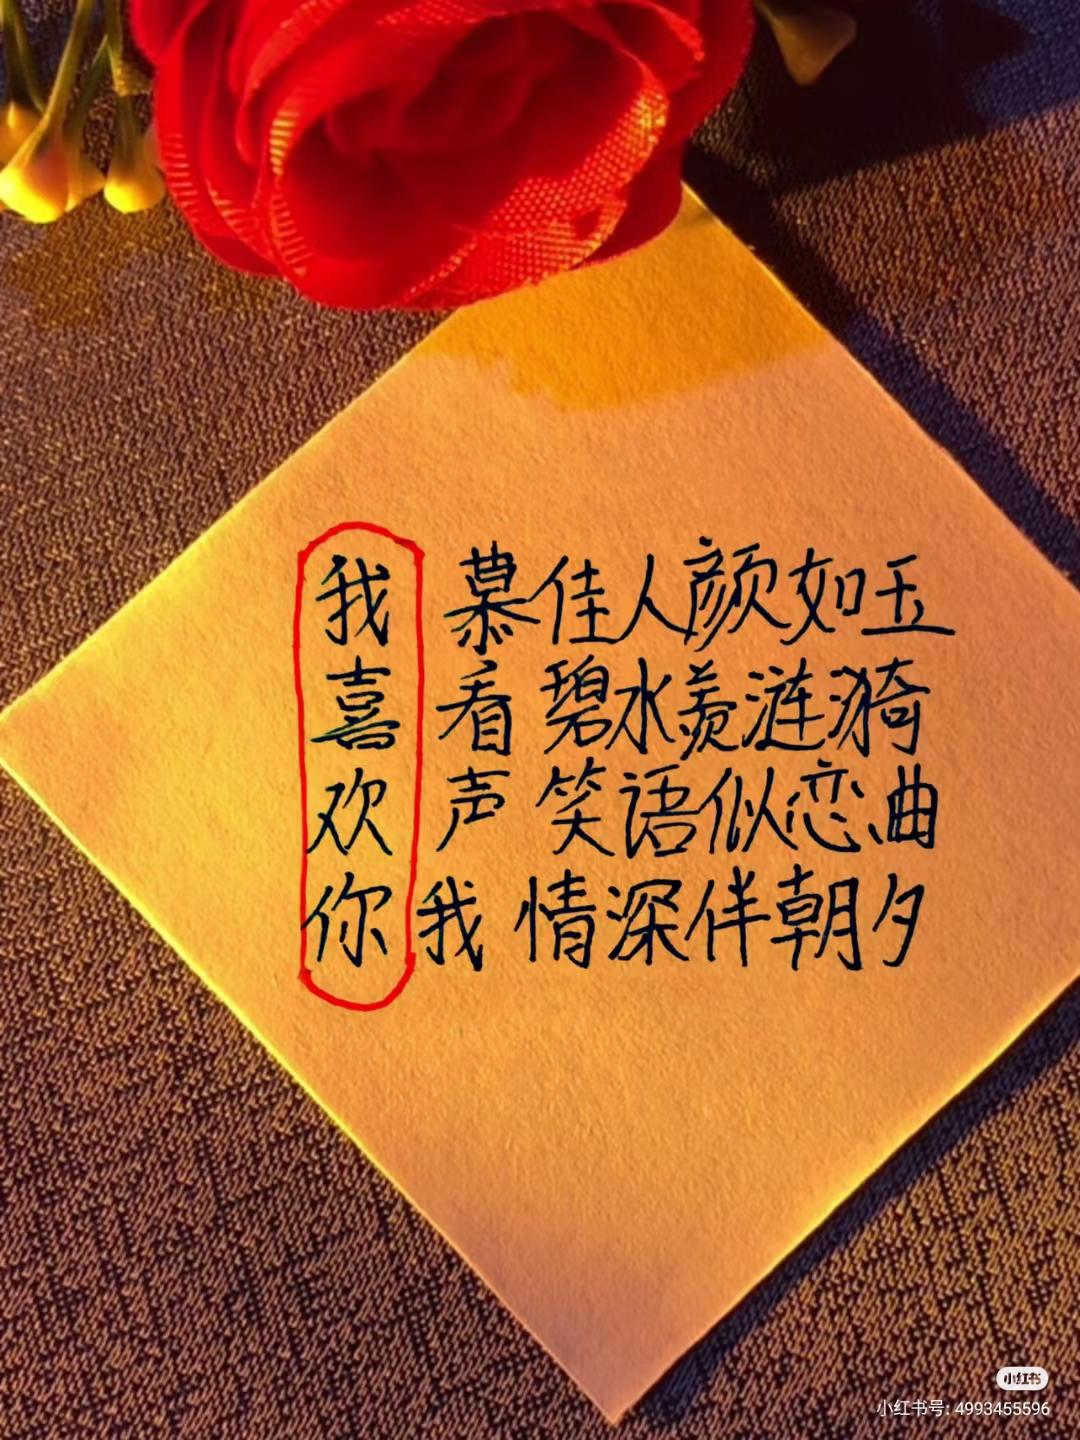 我慕佳人颜如玉
喜看碧水羡涟漪
欢声笑语似恋曲
你我情深伴朝夕
小红书
小红书号: 4993455596